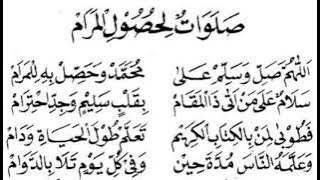 صَلَوَاتٌ لِحُصُوْلِ الْمَرَامِ
اَللّٰهُمَّ صَلِّ وَسَلِّمْ عَلٰى مُحَمَّدْ وَحَصِّلْ بِهِ لِلْمَرَامْ
سَلَامٌ عَلٰى مَنْ اَتٰى ذَالْمَقَامْ بِقَلْبٍ سَلِيْمٍ وَجِدِّ احْتِرَامْ
فَطُوْبٰى لِمَنْ بِالْكِتَابِ الْكَرِيْمِ تَعَلَّمْ طُوْلَ الْحَيَاةِ وَدَامْ
وَعَلَّمَهُ النَّاسَ مُدَّةَ حِيْنٍ وَفِيْ كُلِّ يَوْمٍ تَلَا بِالدَّوَامْ